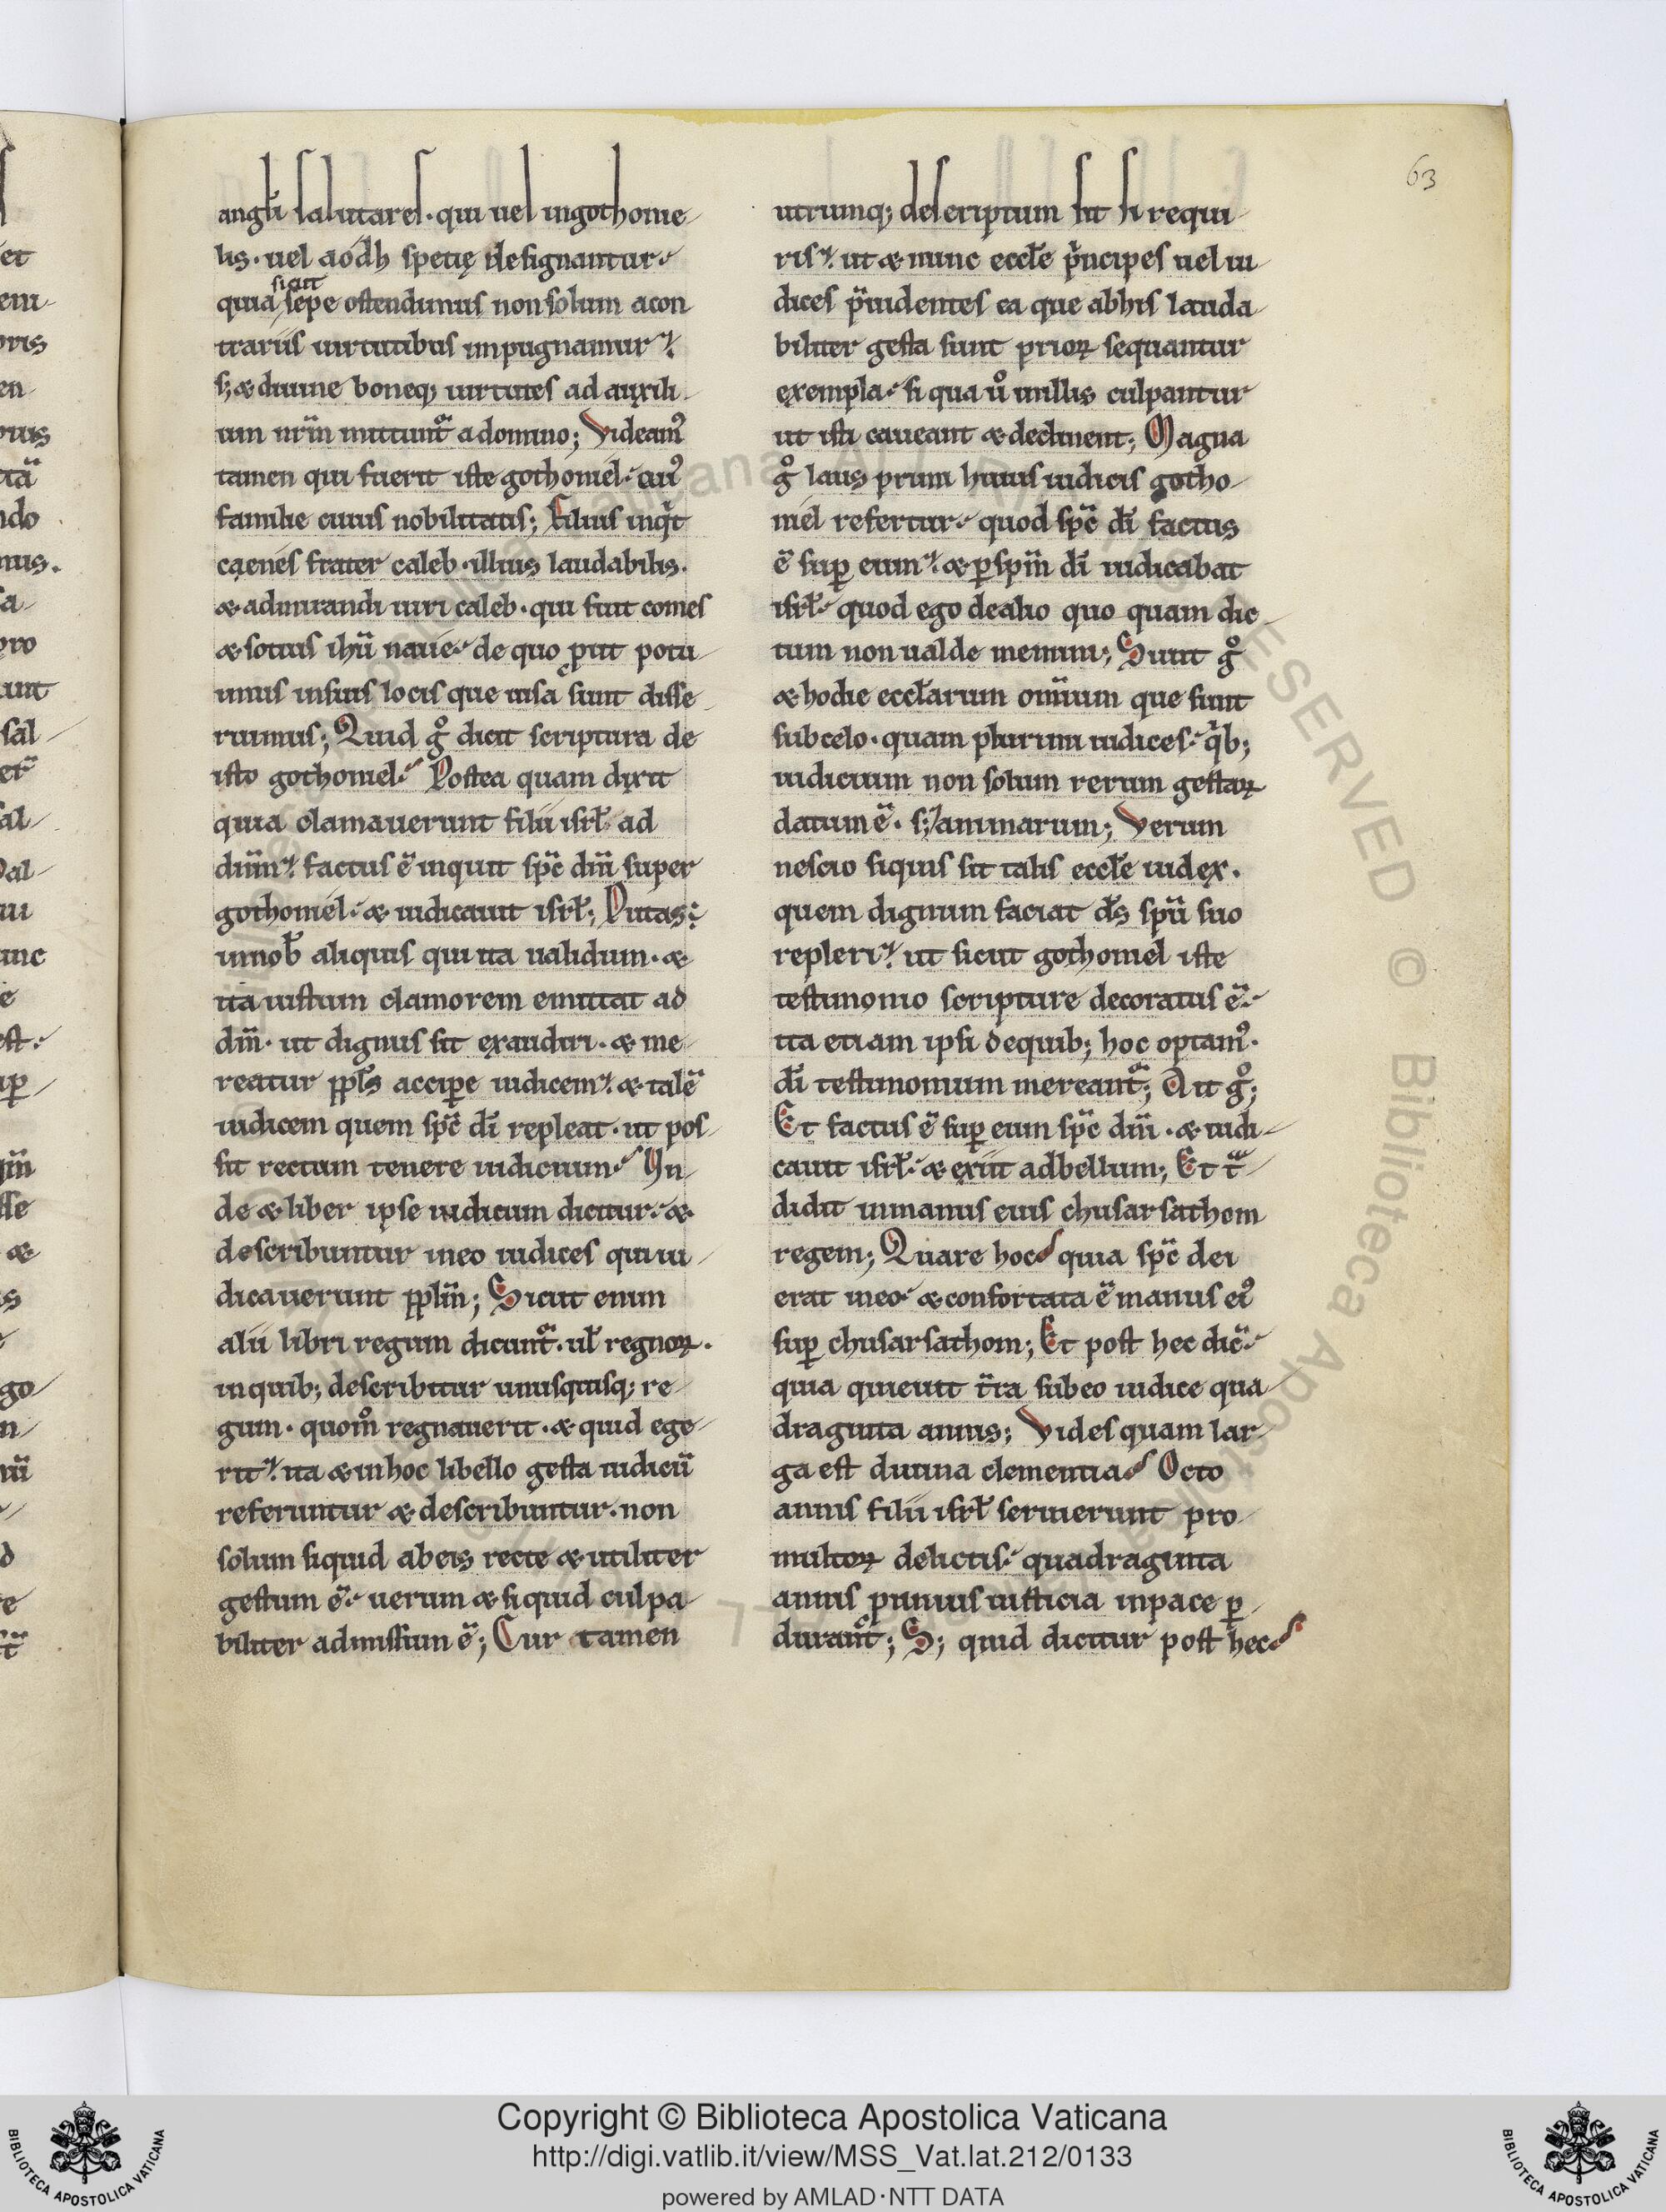 63
angl̄i salutares · qui uel ingothonie-
lis · uel aódh spetię designantur·
quia sicut sepe ostendimus non solum acon
trariis uirtutibus inpugnamur·
s; & diuine boneq; uirtutes ad auxili-
um nr̄m mittunt᷑ a domino; Videam᷒
tamen qui fuerit iste gothoniel· cui᷒
familie cuius nobilitatis; Filius inqͥt
caenes frater caleb · illius laudabilis ·
& admirandi uiri caleb · qui fuit comes
& sotius ihū naue· de quo prut potu-
imus insuis locis que uisa sunt disse-
ruimus; Quid g° dicit scriptura de
isto gothoniel· Postea quam dixit
quia clamauerunt filii isrł ad
dn̄m· factus ē inquit sp̄c dn̄i super
gothoniel· & iudicauit isrł; Putas·
innob̄ aliquis qui ita ualidum · &
ita iustum clamorem emittat ad
dn̄m · ut dignus sit exaudiri · & me-
reatur ppl̄s accipe iudicem· & talē
iudicem quem sp̄c dī repleat · ut pos-
sit rectum tenere iudicium· In-
de & liber ipse iudicum dicitur· &
describuntur ineo iudices qui iu-
dicauerunt ppl̄m; Sicut enim
alii libri regum dicunt᷑ · ul̄ regnoꝝ ·
in quib; describitur unusquisq; re-
gum · quom° regnauerit · & quid ege-
rit· ita & in hoc libello gesta iudicū
referuntur & describuntur · non
solum siquid abeis recte & utiliter
gestum ē· uerum & siquid culpa-
biliter admissum ē; Cur tamen
utrumq; descriptum sit si requi-
ris· ut & nunc eccl̄e pͥncipes uel iu-
dices p᷒uidentes ea que abhis lauda-
biliter gesta sunt prioꝝ sequantur
exempla· si qua u° inillis culpantur
ut isti caueant & declinent; Magna
g° laus primi huius iudicis gotho-
niel refertur· quod sp̄c dī factus
ē suꝑ eum· & ꝑ spm̄ dī iudicabat
isrł· quod ego dealio quo quam dic-
tum non ualde memini; Sunt g°
& hodie eccl̄arum omīum que sunt
subcelo · quam plurimi iudices· qͥb;
iudicium non solum rerum gestaꝝ
datum ē · s; animarum; Verum
nescio siquis sit talis eccl̄e iudex ·
quem dignum faciat d̄s spū suo
repleri· ut sicut gothoniel iste
testimonio scripture decoratus ē·
ita etiam ipsi dequib; hoc optam᷒ ·
dī testimonium mereant᷑; Ait g°;
Et factus ē suꝑ eum sp̄c dn̄i · & iudi-
cauit isrł· & exiit adbellum; Et tᷓ-
didit inmanus eius chusarsathom
regem; Quare hoc· quia sp̄c dei
erat ineo· & confortata ē manus ei᷒
suꝑ chusarsathom; Et post hec dic̄·
quia quieuit t̄ra subeo iudice qua-
draginta annis; Vides quam lar-
ga est diuina clementia· Octo
annis filii isrł seruierunt pro
multoꝝ delictis· quadraginta
annis prniuis iusticia inpace ꝑ-
durant᷑; S; quid dicitur post hec·
Copyright © Biblioteca Apostolica Vaticana
http://digi.vatlib.it/view/MSS_Vat.lat.212/0133
powered by AMLAD·NTT DATA
BIBLIOTECA APOSTOLICA VATICANA
BIBLIOTECA APOSTOLICA VATICANA